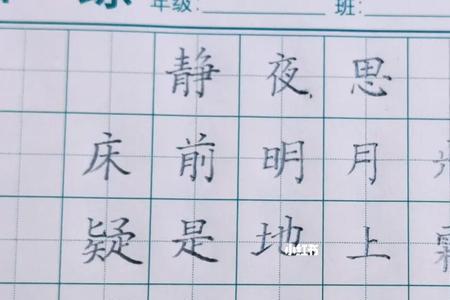 年级: 班:
静夜思
床前明月
疑是地上
小红书